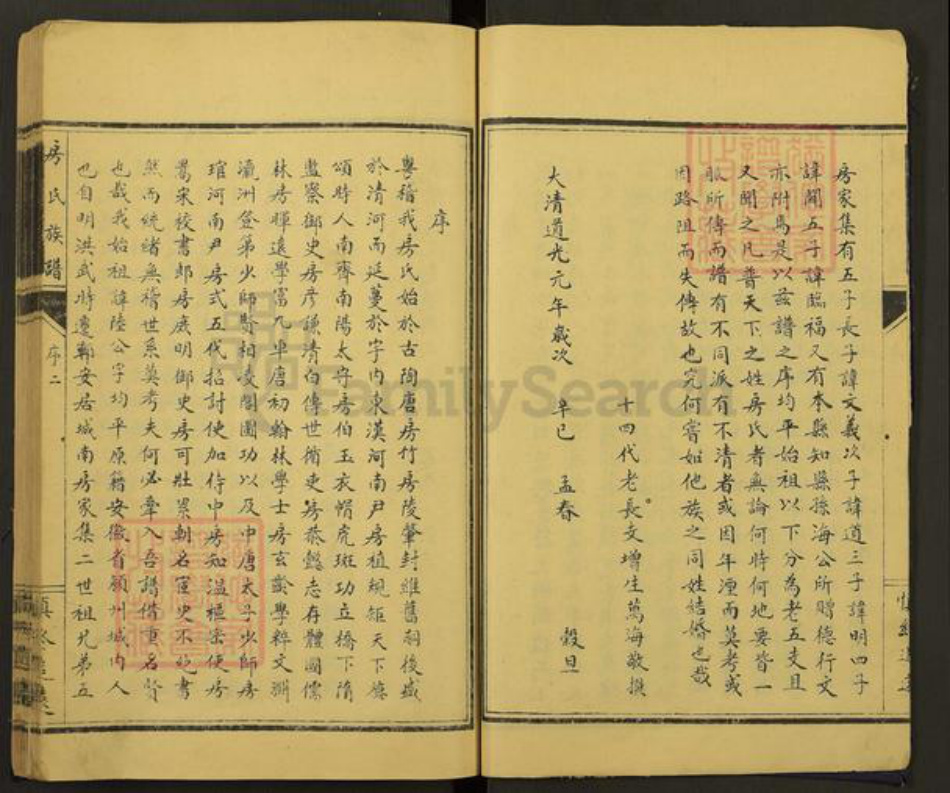 房家集有五子長子諱文義次子諱道三子諱明四子
諱闻五子諱臨福又有本縣知縣孫海公所贈德行文
亦附焉是以茲譜之序均平始祖以下分為老五支且
又聞之凡普天下之姓房氏者無論何時何地要皆一
脈所傳而譜有不同派有不清者或因年湮而莫考或
因路阻而失傳故也究何嘗如他族之同姓結婚也哉
十四代老長支增生萬海敬撰
大清道光元年歲次 辛巳 孟春 穀旦
序
粵稽我房氏始於古陶唐房竹房陵肇封雖舊嗣後盛
於清河而延蔓於宇内東漢河南尹房植規矩天下德
頌時人南齊南陽太守房伯玉衣帽虎斑功立橋下隋
監察御史房彦謙清白傳世循吏房恭懿志存體國儒
林房暉遠學富九車唐初翰林學士房玄齡學粹文淵
瀛洲登第少師賢相凌閣圖功以及中唐太子少師房
琯河南尹房式五代招討使加侍中房知温樞密使房
暠宋校書郎房庶明御史房可壯累朝名宦史不絶書
然而統緒無稽世系莫考夫何必牽入吾譜借重名賢
也哉我始祖諱陸公字均平原籍安徽省颍州城内人
也自明洪武時遷鄲安居城南房家集二世祖兄弟五
房氏族譜
序二
FamilySearch